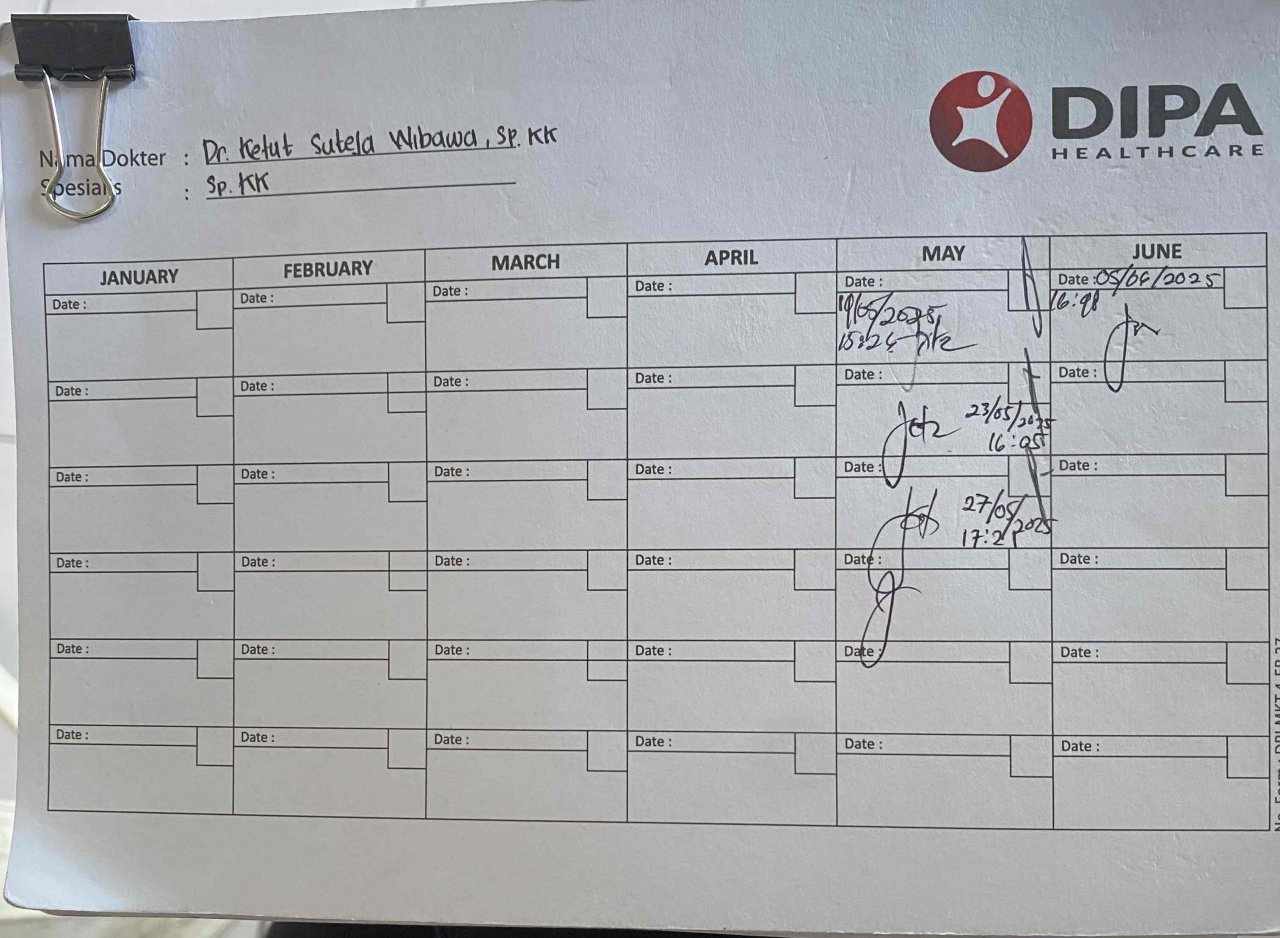 DIPA
HEALTHCARE
Nama Dokter : Dr. Ketut Suteja Wibawa, Sp. KK
Spesialis : Sp. KK
JANUARY FEBRUARY MARCH APRIL MAY JUNE
Date : Date : Date : Date : Date : Date : 05/06/2025
19/05/2025
15:24
Date : Date : Date : Date : Date : Date :
23/05/2025
16:05
Date : Date : Date : Date : Date : Date :
27/05/2025
17:21
Date : Date : Date : Date : Date : Date :
Date : Date : Date : Date : Date : Date :
Date : Date : Date : Date : Date : Date :